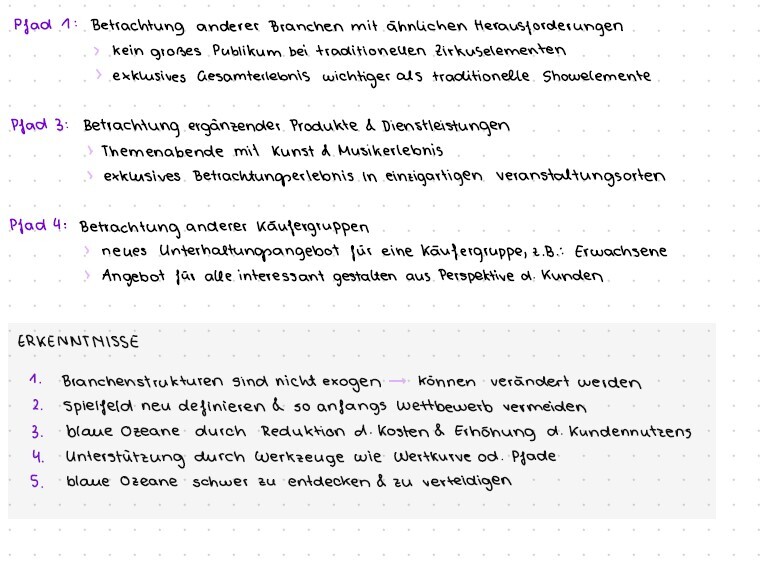 Pfad 1: Betrachtung anderer Branchen mit ähnlichen Herausforderungen
> kein großes Publikum bei traditionellen Zirkuselementen
> exklusives Gesamterlebnis wichtiger als traditionelle Showelemente
Pfad 3: Betrachtung ergänzender Produkte & Dienstleistungen
> Themenabende mit Kunst & Musikerlebnis
> exklusives Betrachtungerlebnis in einzigartigen Veranstaltungsorten
Pfad 4: Betrachtung anderer Käufergruppen
> neues Unterhaltungangebot für eine Käufergruppe, z.B.: Erwachsene
> Angebot für alle interessant gestalten aus Perspektive d. Kunden
ERKENNTNISSE
1. Branchenstrukturen sind nicht exogen → können verändert werden
2. Spielfeld neu definieren & so anfangs Wettbewerb vermeiden
3. blaue Ozeane durch Reduktion d. Kosten & Erhöhung d. Kundennutzens
4. Unterstützung durch Werkzeuge wie Wertkurve od. Pfade
5. blaue Ozeane schwer zu entdecken & zu verteidigen